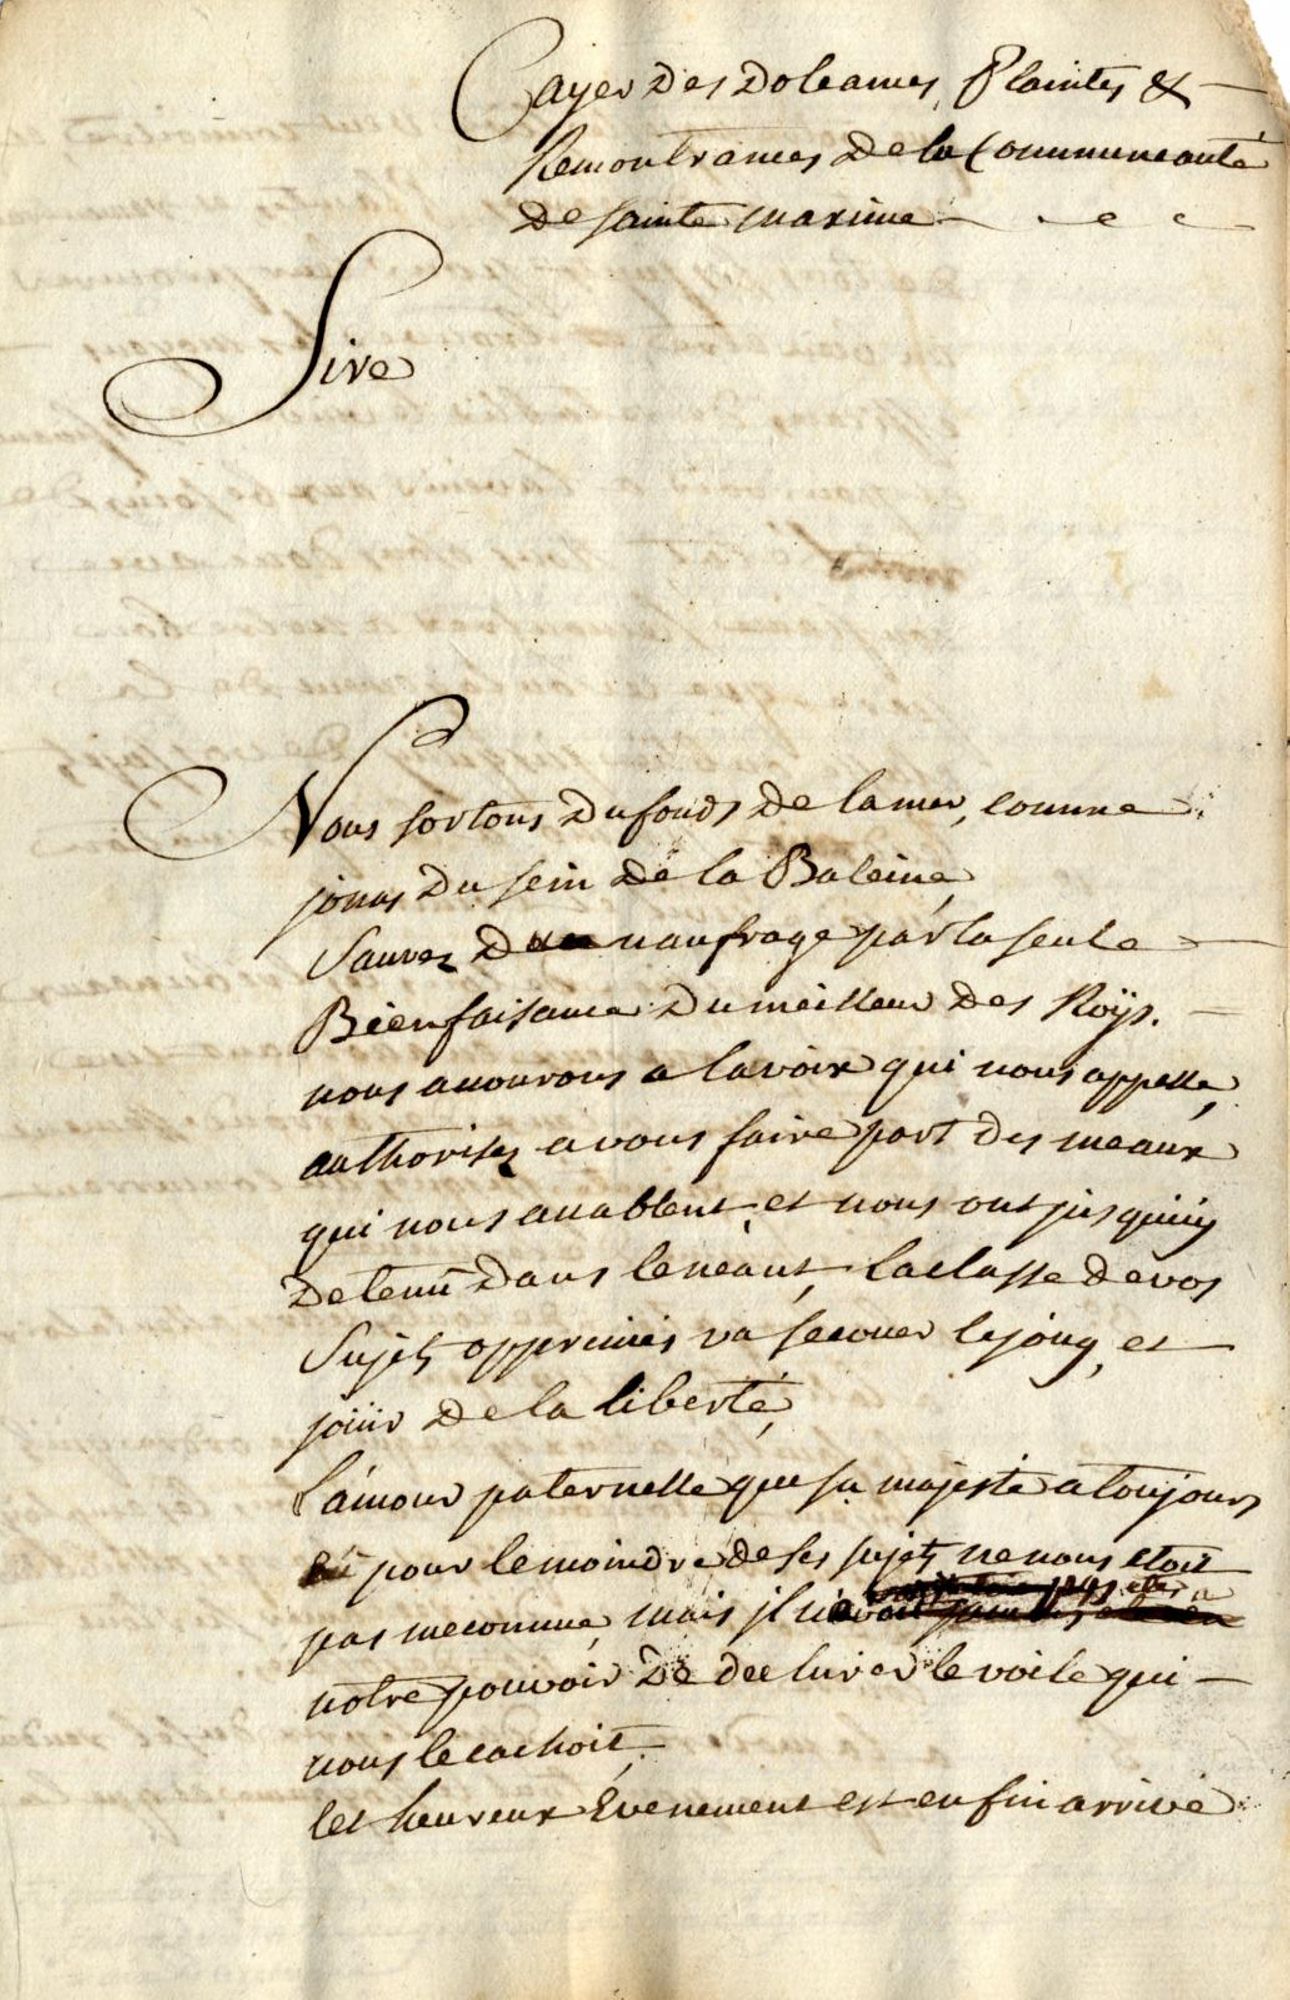 Cayer des doleances, Plaintes &
Remontrances de la Communeauté
de sainte maxime
Sire
Nous sortons du fonds de la mer, comme
jonas du sein de la Baleine,
Sauvez du naufrage par la seule
Bienfaisance du meilleur des Roÿs.
nous accourons a la voix qui nous appelle,
authorisez a vous faire part des meaux
qui nous accablent, et nous ont jusquiiy
detenü dans le néant, la classe de vos
Sujets opprimés va secouer le joug, et
joüir de la liberté,
L'amour paternelle que sa majesté a toujours
eü pour le moindre de ses sujets ne nous etoit
pas meconnue, mais jl n'
pas etté a
notre pouvoir de decluver le voile qui
nous le cachoit.
Cet heureux Evenement est enfin arrivé